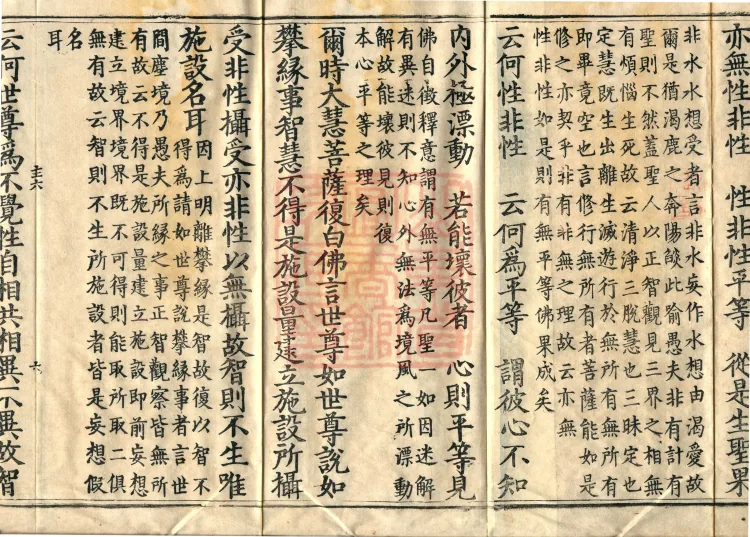 亦無性非性　性非性平等　從是生聖果
非水水想受者言非水妄作水想由渴愛故
爾是猶渴鹿之奔陽燄此喻愚夫非有計有
聖則不然蓋聖人以正智觀見三界之相無
有煩惱生死故云清淨三脫慧也三昧定也
定慧既生出離生滅遊行於無所有無所有
即畢竟空也言修行無所有者菩薩能如是
修之亦契乎非有非無之理故云亦無
性非性如是則有無平等佛果成矣
云何性非性　云何為平等　謂彼心不知
內外極漂動　若能壞彼者　心則平等見
佛自徵釋意謂有無平等凡聖一如因迷解
有異迷則不知心外無法為境風之所漂動
解故能壞彼見則復
本心平等之理矣
爾時大慧菩薩復白佛言世尊如世尊說如
攀緣事智慧不得是施設量建立施設所攝
受非性攝受亦非性以無攝故智則不生唯
施設名耳
因上明離攀緣是智故復以智不
得為請如世尊說攀緣事者言世
間塵境乃愚夫所緣之事正智觀察皆無所
有故云不得是施設量建立施設即前妄想
建立境界境界既不可得則能取所取二俱
無有故云智則不生所施設者皆是妄想假
名
耳
主六
六
云何世尊為不覺性自相共相異不異故智